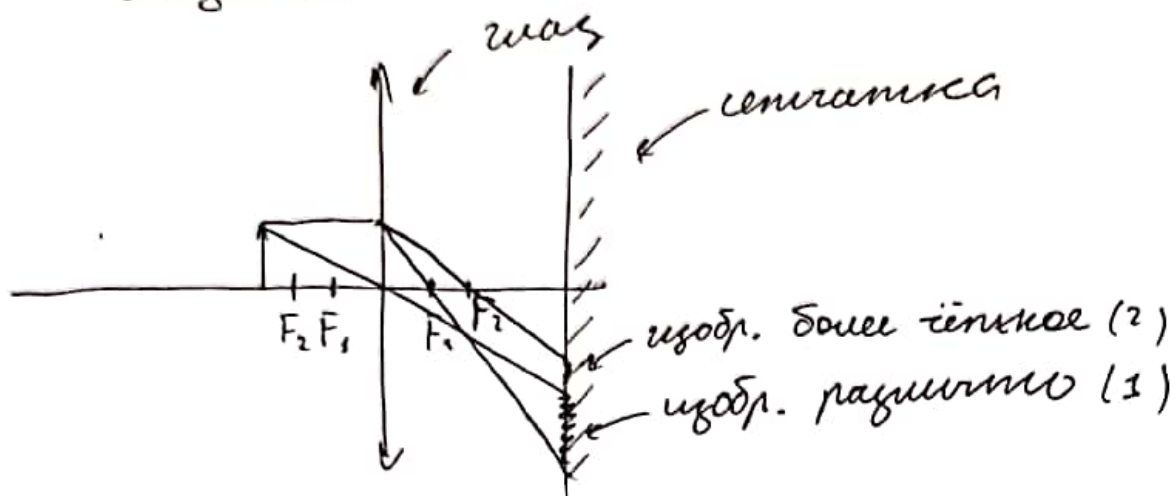 глаз
сетчатка
F₂ F₁ F₁ F₂
изобр. более чёткое (2)
изобр. размыто (1)